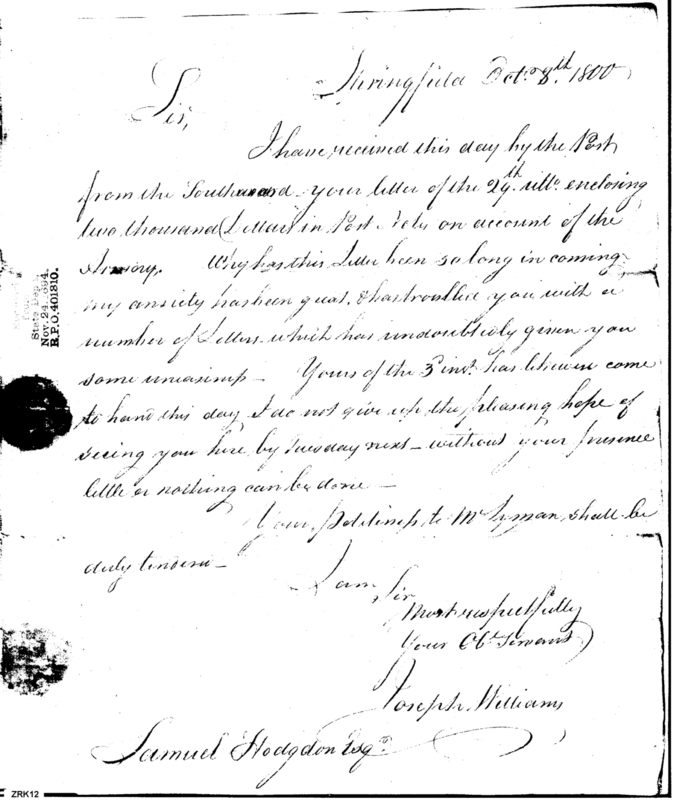 Springfield Octr. 8th. 1800
Sir,
I have received this day by the Post
from the Southward your letter of the 29th. ulto. enclosing
two thousand Dollars in Post Notes on account of the
Armory. Why has this Letter been so long in coming
my anxiety has been great, & has troubled you with a
number of Letters which has undoubtedly given you
some uneasiness — Yours of the 3d inst. has likewise come
to hand this day I do not give up the pleasing hope of
seeing you here by Tuesday next — without your presence
little or nothing can be done —
Your politeness to Mr Lyman shall be
duly tendered —
I am Sir
Most respectfully
Your Obt. Servant
Joseph Williams
Samuel Hodgdon Esqr.
State Dept.
Nov. 24, 1894.
R.P.O. 401810.
ZRK12